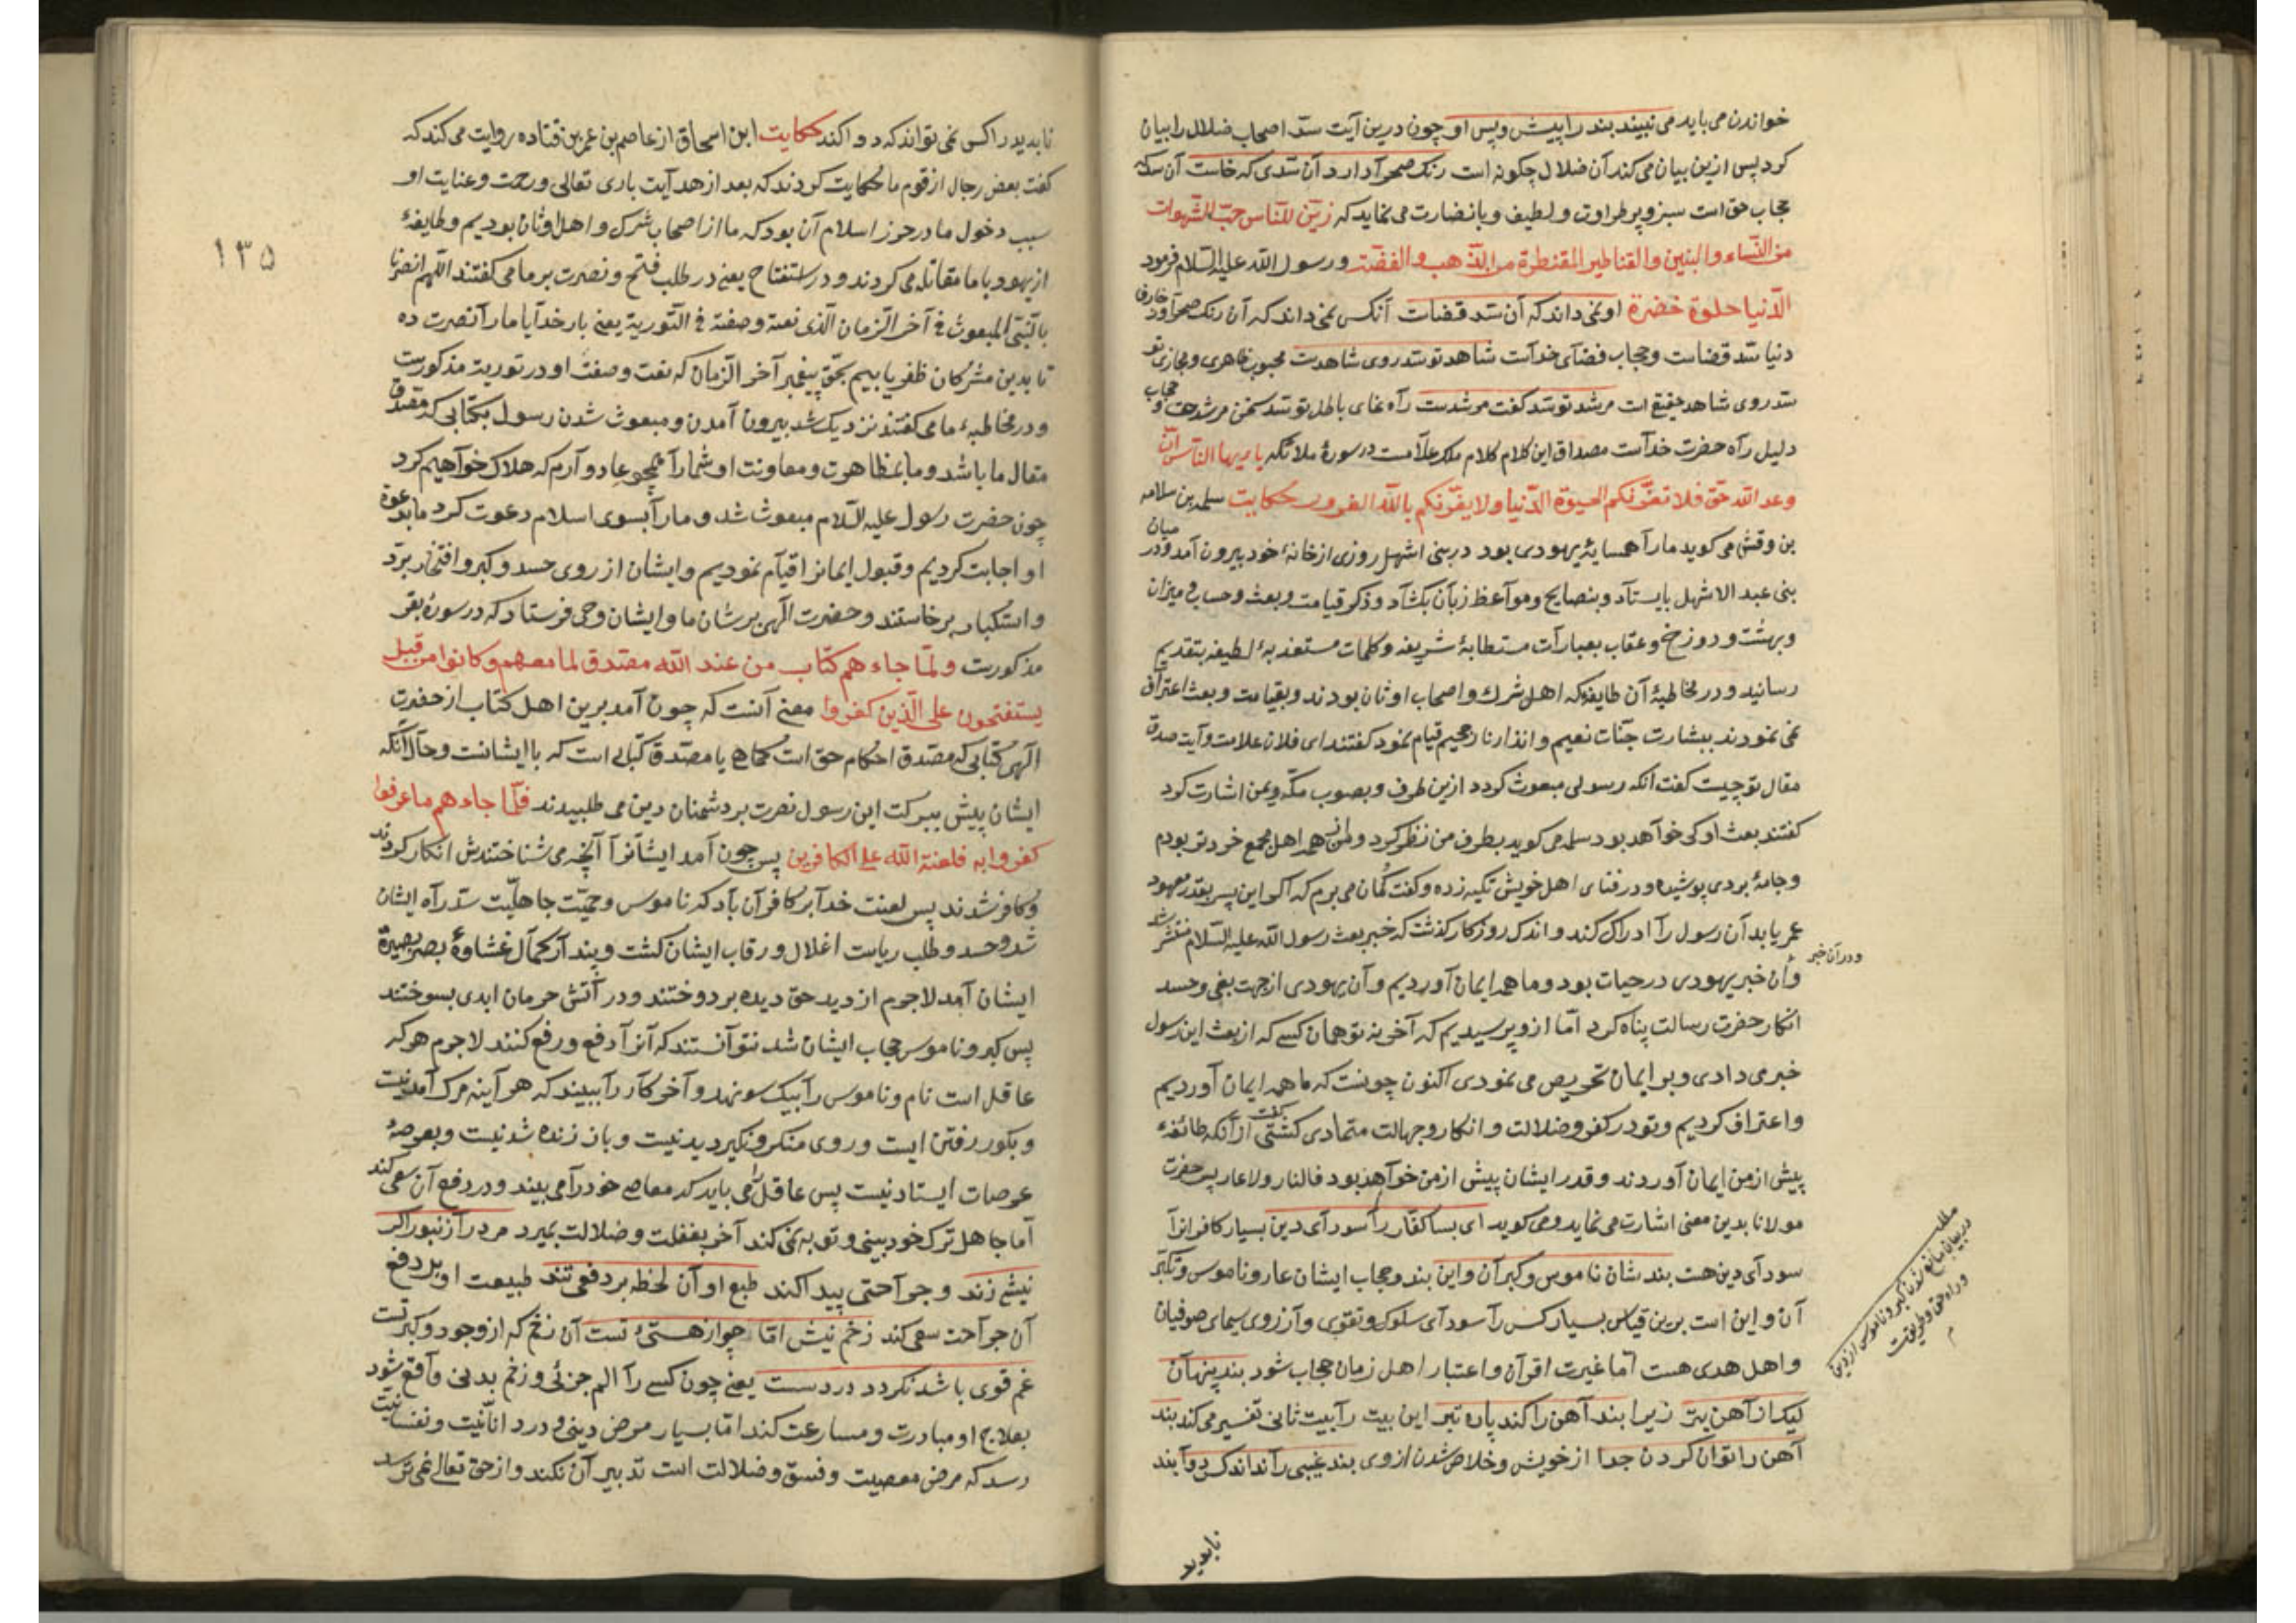 خواندن می باید می نبیند بند را پیش و پس او چون درین آیت سدّ اصحاب ضلال را بیان
کرد پس ازین بیان می کند آن ضلال چگونه است رنک صحرآ دارد آن سدی که خاست آن سد که
حجاب حق است سبز و پر طراوت و لطیف و با نضارت می نماید که زین للناس حبّ الشهوات
من النّساء والبنین والقناطیر المقنطرة من الذّهب والفضّة و رسول الله علیه السّلام فرمود
الدّنیا حلوة خضرة او نمی داند که آن سدّ قضاست آنکس نمی داند که آن رنک صحرآ دارد
دنیا سدّ قضاست و حجاب فضآی خدآست شاهد تو سدّ روی شاهدست محبوب ظاهری و مجازی تو
سدّ روی شاهد حقیقی است مرشد تو سدّ کفت مرشدست راه نمای باطل تو سدّ سخن مرشد حق و حجاب
دلیل رآه حضرت خدآست مصداق این کلام کلام ملک علّامست در سورهٔ ملائکه یا ایها الناس انّ
وعد الله حقّ فلا تغرّنکم الحیوة الدّنیا ولا یغرّنکم بالله الغرور حکایت سلمة بن سلامه
بن وقش می کوید ما رآ همسایهٔ یهودی بود در بنی اشهل روزی از خانهٔ خود بیرون آمد و در میان
بنی عبد الاشهل بایستآد و بنصایح و موآعظ زبآن بکشآد و ذکر قیامت و بعث و حساب و میزان
و بهشت و دوزخ و عقاب بعبارآت مستطابهٔ شریفه و کلمات مستعذبهٔ لطیفه بتقدیم
رسانید و در مخاطبهٔ آن طایفه که اهل شرك و اصحاب اوثان بودند و بقیامت و بعث اعتراف
نمی نمودند ببشارت جنّات نعیم و انذار نار جحیم قیام نمود کفتند ای فلان علامت و آیت صدق
مقال تو چیست کفت آنکه رسولی مبعوث کردد ازین طرف و بصوب مکّه و یمن اشارت کرد
کفتند بعث او کی خوآهد بود سلمه می کوید بطرف من نظر کرد و من از همه اهل مجمع خردتر بودم
و جامهٔ بردی پوشیده و در فنای اهل خویش تکیه زده و کفت کمان می برم که اکر این پسر بقدر معهود
عمر یابد آن رسول رآ ادراك کند و اندك روزکار کذشت که خبر بعث رسول الله علیه السّلام منتشر شد
و در آن خبر
و آن خبر یهودی در حیات بود و ما همه ایمان آوردیم و آن یهودی از جهت بغی و حسد
انکار حضرت رسالت پناه کرد امّا ازو پرسیدیم که آخر نه تو همان کسی که از بعث این رسول
خبر می دادی و بر ایمان تحریص می نمودی اکنون چونست که ما همه ایمان آوردیم
و اعتراف کردیم و تو در کفر و ضلالت و انکار و جهالت متمادی کشتی کفت از آنکه طائفهٔ
پیش از من ایمان آوردند و قدر ایشان پیش از من خوآهد بود فالنار ولا عار پس حضرت
مولانا بدین معنی اشارت می نماید و می کوید ای بسا کفّار رآ سودآی دین بسیار کافرانرآ
سودآی دین هست بند شان ناموس و کبر آن و این بند و حجاب ایشان عار و ناموس و تکبّر
آن و این است برین قیاس بسیار کس رآ سودآی سلوك و تقوی و آرزوی سیمای صوفیان
و اهل هدی هست امّا غیرت اقرآن و اعتبار اهل زمان حجاب شود بند پنهان
لیک از آهن بتر زیرا بند آهن را کند پاره تبر این بیت رآ بیت ثانی تفسیر می کند بند
آهن را توان کردن جدا از خویش و خلاص شدن از وی بند غیبی رآ نداند کس دوآ بند
مطلب
در بیان مانع شدن کبر و ناموس از دین
و راه حق و طریقت
م
ناپدید
۱۳۵
ناپدید را کس نمی تواند که دوا کند حکایت ابن اسحاق از عاصم بن عمر بن قتاده روایت می کند که
کفت بعض رجال از قوم ما حکایت کردند که بعد از هدآیت باری تعالی و رحمت و عنایت او
سبب دخول ما در حوز اسلام آن بود که ما از اصحاب شرك و اهل اوثان بودیم و طایفهٔ
از یهود با ما مقاتله می کردند و در استفتاح یعنی در طلب فتح و نصرت بر ما می کفتند اللّهم انصرنا
بالنّبی المبعوث فی آخر الزّمان الّذی نعته و صفته فی التّوریة یعنی بار خدآیا ما رآ نصرت ده
تا بدین مشرکان ظفر یابیم بحقّ پیغمبر آخر الزّمان که نعت و صفت او در توریة مذکورست
و در مخاطبهٔ ما می کفتند نزدیک شد بیرون آمدن و مبعوث شدن رسول بکتابی که مصدّق
مقال ما باشد و ما بمظاهرت و معاونت او شما رآ همچو عاد و آرم که هلاك خوآهیم کرد
چون حضرت رسول علیه السّلام مبعوث شد و ما رآ بسوی اسلام دعوت کرد ما بدعوة
او اجابت کردیم و قبول ایمانرا اقیآم نمودیم و ایشان از روی حسد و کبر و افتخار بردّ
و استکبار برخاستند و حضرت الهی بر شان ما و ایشان وحی فرستاد که در سورهٔ بقر
مذکورست و لمّا جاءهم کتاب من عند الله مصدق لما معهم و کانوا من قبل
یستفتحون علی الّذین کفروا معنی آنست که چون آمد برین اهل کتاب از حضرت
الهی کتابی که مصدق احکام حق است کماهی یا مصدق کتابی است که با ایشانست و حال آنکه
ایشان پیش ببرکت این رسول نصرت بر دشمنان دین می طلبیدند فلمّا جاءهم ما عرفوا
کفروا به فلعنة الله علی الکافرین پس چون آمد ایشآنرآ آنچه می شناختندش انکار کردند
و کافر شدند پس لعنت خدآ بر کافرآن باد که ناموس و حمیّت جاهلیّت سدّ رآه ایشان
شد و حسد و طلب ریاست اغلال و رقاب ایشان کشت و پندار کمآل غشاوهٔ بصر بصیرة
ایشان آمد لاجرم از دید حق دیده بر دوختند و در آتش حرمان ابدی بسوختند
پس کبر و ناموس حجاب ایشان شد نتوآنستند که آنرآ دفع و رفع کنند لاجرم هر که
عاقل است نام و ناموس رآ بیک سو نهد و آخر کآر رآ ببیند که هر آینه مرک آمدنیست
و بکور رفتن ایست و روی منکر و نکیر دیدنیست و باز زنده شدنیست و بعرصهٔ
عرصات ایستادنیست پس عاقل را می باید که معاصی خود رآ می بیند و در دفع آن سعی کند
امّا جاهل ترك خودبینی و توبه نمی کند آخر بغفلت و ضلالت بمیرد مرد رآ زنبور اکر
نیشی زند و جرآحتی پیدا کند طبع او آن لحظه بر دفعی تند طبیعت او بر دفع
آن جرآحت سعی کند زخم نیش امّا چو از هستیٔ تست آن زخم که از وجود و کبر تست
غم قوی باشد نکردد درد سست یعنی چون کسی رآ الم جزئی و زخم بدنی وآقع شود
بعلاج او مبادرت و مسارعت کند امّا بسیار مرض دینی و درد انّانیّت و نفسانیّت
رسد که مرض معصیت و فسق و ضلالت است تدبیر آن نکند و از حق تعالی نمی ترسد